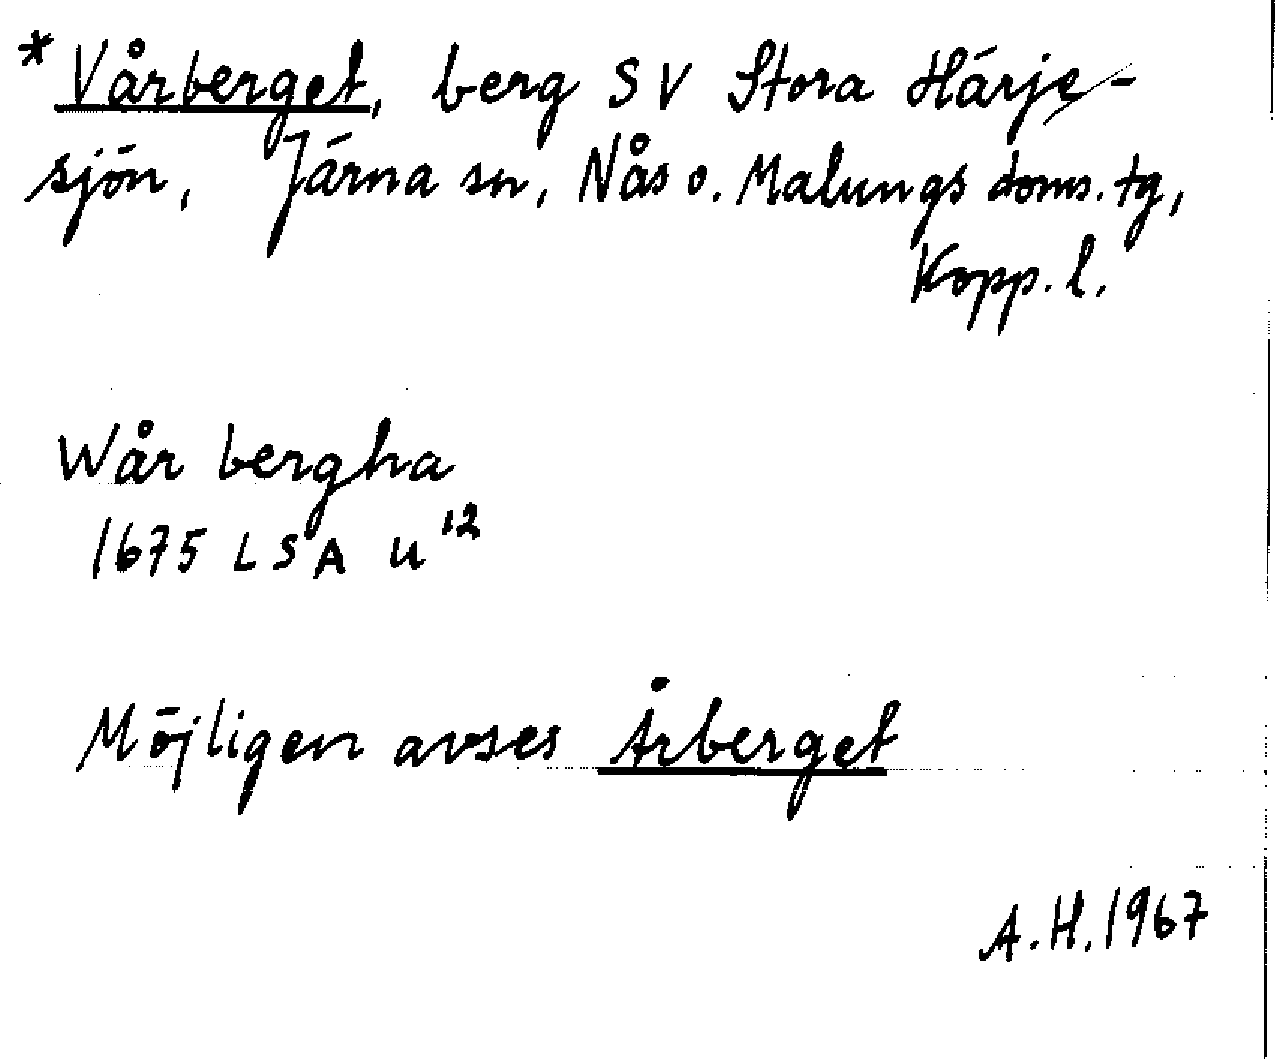 * Vårberget, berg SV Stora Härje-
sjön, Järna sn, Nås o. Malungs doms. tg,
Kopp. l.
Wår bergha
1675 LSA U 12
Möjligen avses Årberget
A.H. 1967